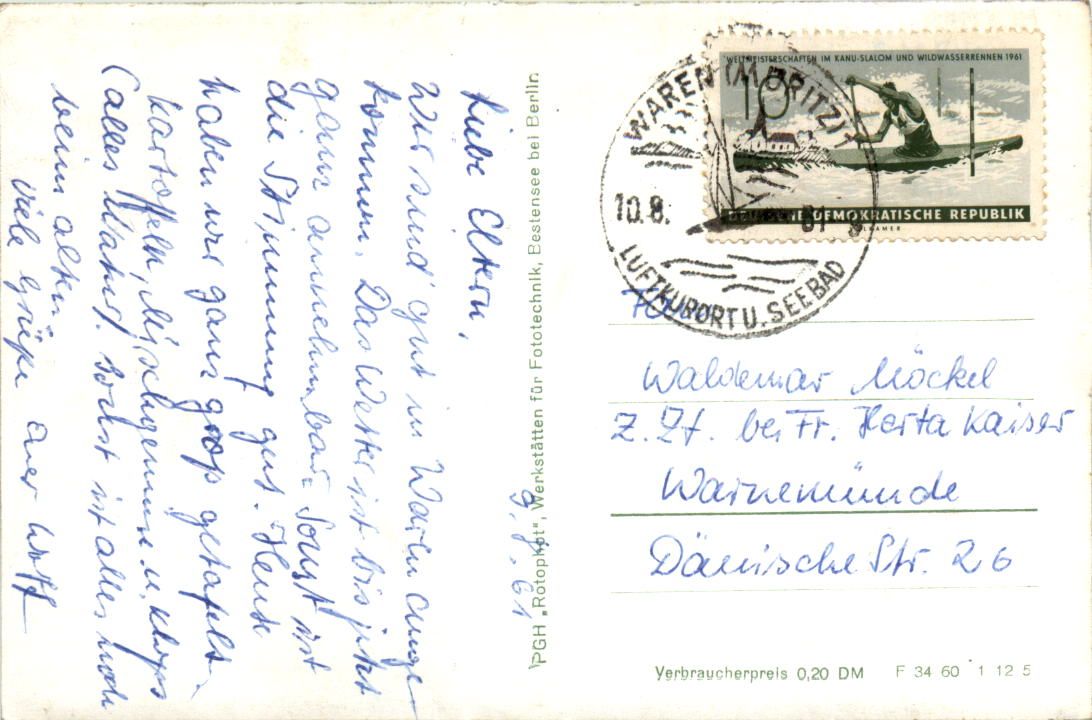 9.8.61
Liebe Eltern,
Wir sind gut in Waren ange-
kommen. Das Wetter ist bis jetzt
ganz annehmbar. Sonst ist
die Stimmung gut. Heute
haben wir ganz groß getafelt.
Kartoffeln, Mischgemüse u. Klops
(alles Mano). Sonst ist alles noch
beim alten.
Viele Grüße euer
PGH „Rotophot", Werkstätten für Fototechnik, Bestensee bei Berlin.
WELTMEISTERSCHAFTEN IM KANU-SLALOM UND WILDWASSERRENNEN 1961
10
DEUTSCHE DEMOKRATISCHE REPUBLIK
WAREN (MÜRITZ)
10.8.61
LUFTKURORT U. SEEBAD
Waldemar Möckel
z. Zt. bei Fr. Herta Kaiser
Warnemünde
Dänische Str. 26
Verbraucherpreis 0,20 DM F 34 60 1 12 5